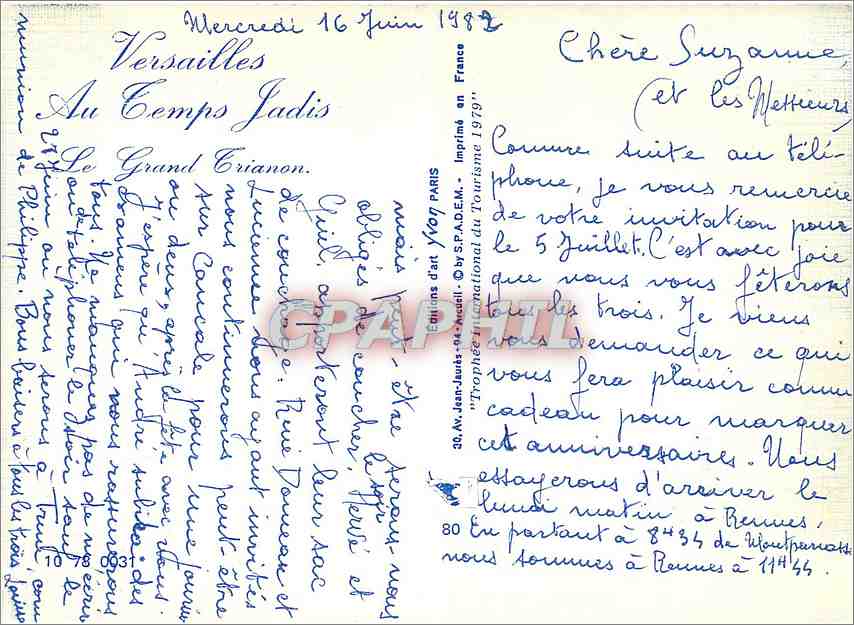 Mercredi 16 Juin 1982
Versailles
Au Temps Jadis
Le Grand Trianon.
Chère Suzanne,
(et les Messieurs)
Comme suite au télé-
phone, je vous remercie
de votre invitation pour
le 5 Juillet. C'est avec joie
que nous vous fêterons
tous les trois. Je viens
vous demander ce qui
vous fera plaisir comme
cadeau pour marquer
cet anniversaires. Nous
essayerons d'arriver le
lundi matin à Rennes.
En partant à 8h34 de Montparnasse
nous sommes à Rennes à 11h44.
mais peut-être serons-nous
obligés de coucher, le soir Hervé et
Guil. apporteront leur sac
de couchage. Rue Doneau et
Lucienne nous ayant invités
nous continuerons peut-être
sur Cancale pour une journée
ou deux, après la fête avec vous.
J'espère qu'André subira des
examens qui nous rassurerons
tous. Ne manquez pas de m'écrire
ou de téléphoner le soir sauf le
27 Juin où nous serons à
munion de Philippe. Bons baisers à tous les trois
EDITIONS d'art yvon PARIS
30, Av. Jean-Jaurès - 94 - Arcueil - © by S.P.A.D.E.M. - Imprimé en France
"Trophée International du Tourisme 1979"
80
10 78 0031
CPAPHIL